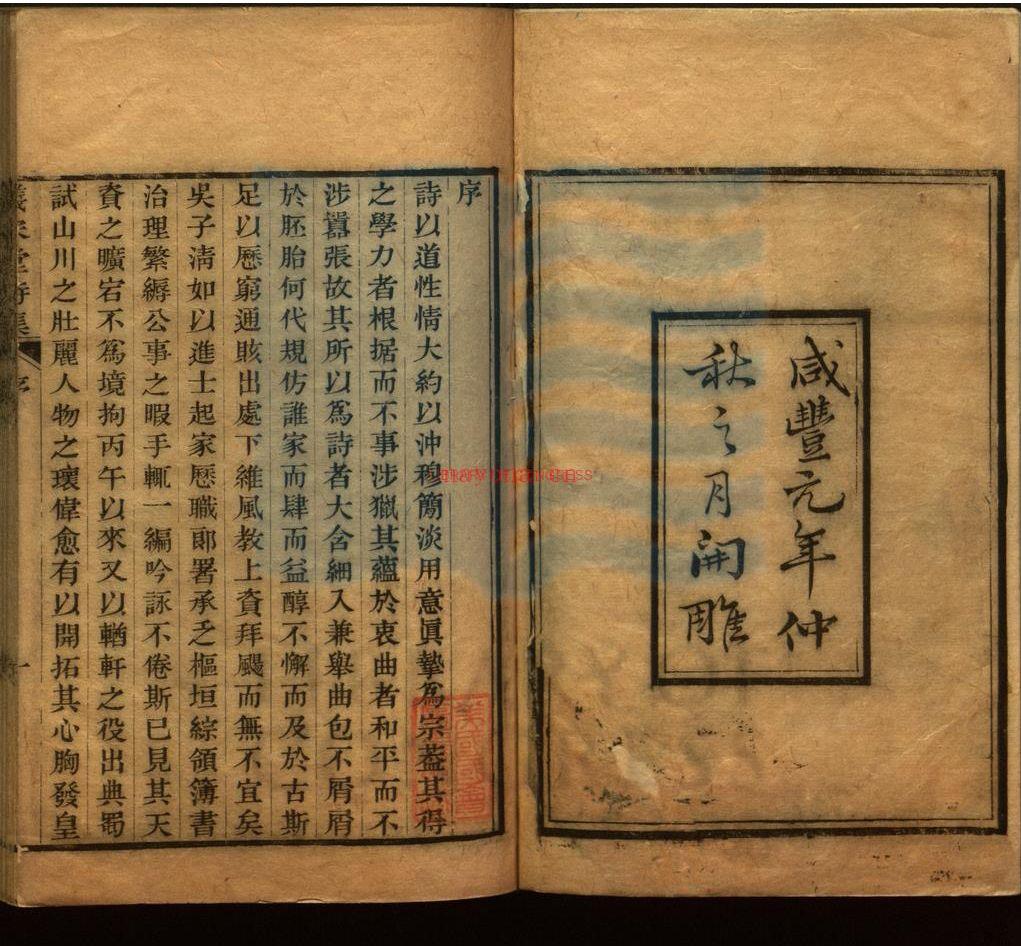 咸豐元年仲
秋之月開雕
序
詩以道性情大約以沖穆簡淡用意眞摯爲宗葢其得
之學力者根据而不事涉獵其蘊於衷曲者和平而不
涉囂張故其所以爲詩者大含細入兼舉曲包不屑屑
於胚胎何代規仿誰家而肆而益醇不懈而及於古斯
足以歷窮通賅出處下維風教上資拜颺而無不宜矣
吳子淸如以進士起家歷職郎署承乏樞垣綜領簿書
治理繁縟公事之暇手輒一編吟詠不倦斯已見其天
資之曠宕不爲境拘丙午以來又以輶軒之役出典蜀
試山川之壯麗人物之瓌偉愈有以開拓其心胸發皇
宋堂詩集 序 一
美國國會